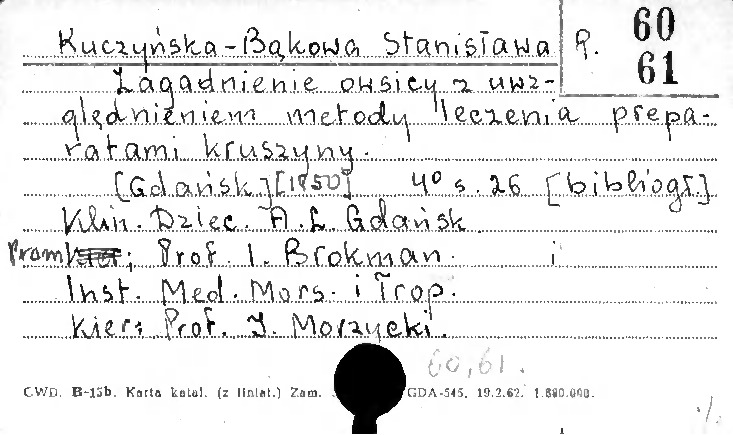 Kuczyńska-Bąkowa Stanisława R. 60
61
Zagadnienie owsicy z uwz-
ględnieniem metody leczenia prepa-
ratami kruszyny.
[Gdańsk] [1950] 4° s. 26 [bibliogr.]
Klin. Dziec. A.L. Gdańsk.
Prom: Prof. I. Brokman. i
Inst. Med. Mors. i Trop.
Kier: Prof. J. Morzycki.
60,61.
CWD. B-15b. Karta katal. (z liniat.) Zam. GDA-545. 19.2.62. 1.880.000.